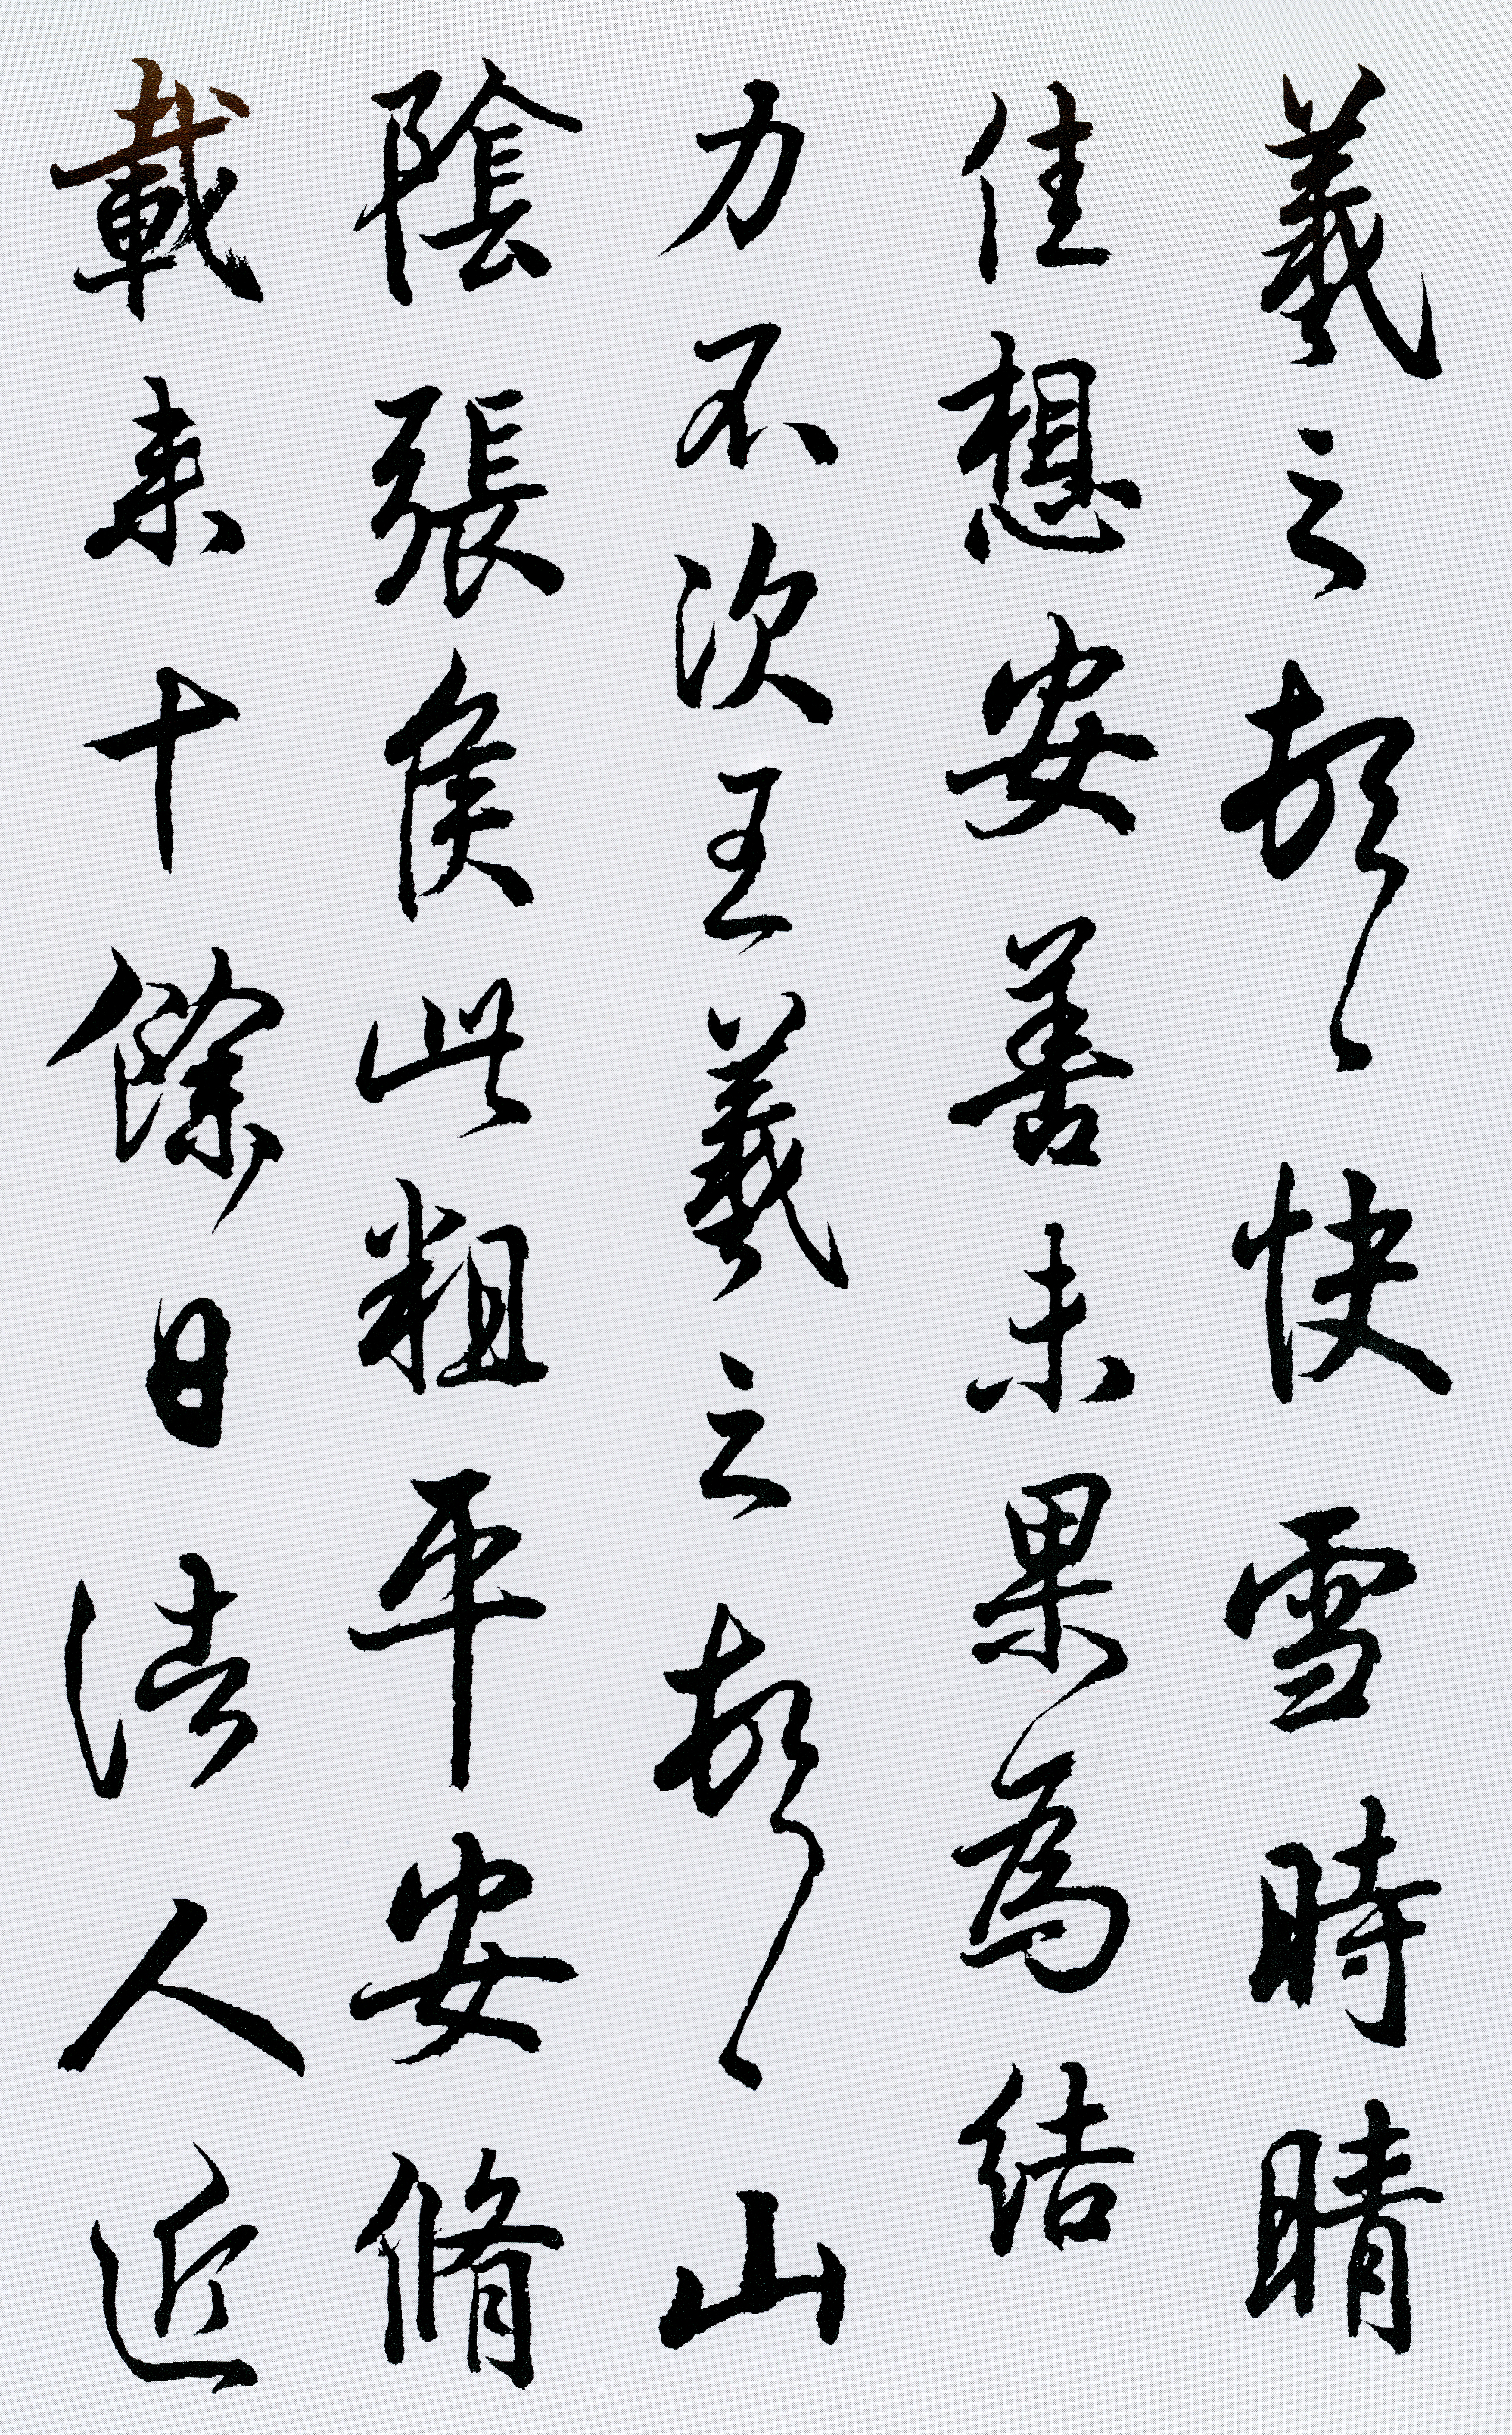 羲之頓首快雪時晴
佳想安善未果為結
力不次王羲之頓首山
陰張侯此粗平安脩
載来十餘日諸人近